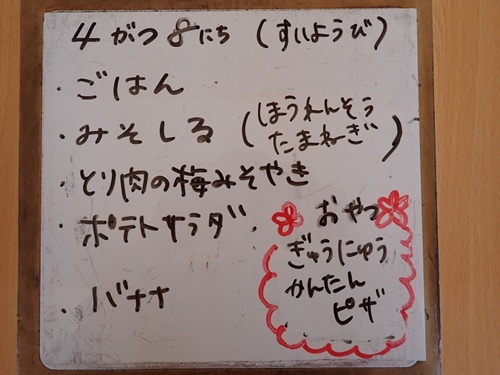 4がつ8にち (すいようび)
・ごはん
・みそしる (ほうれんそう
たまねぎ)
・とり肉の梅みそやき
・ポテトサラダ.
・バナナ
おやつ
ぎゅうにゅう
かんたん
ピザ